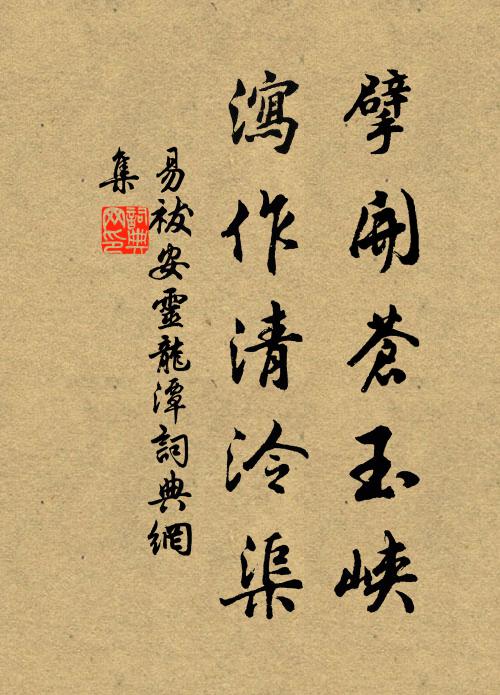 擘開蒼玉峽
瀉作清泠渠
易祓安靈龍潭詞典網
集
詞典网印